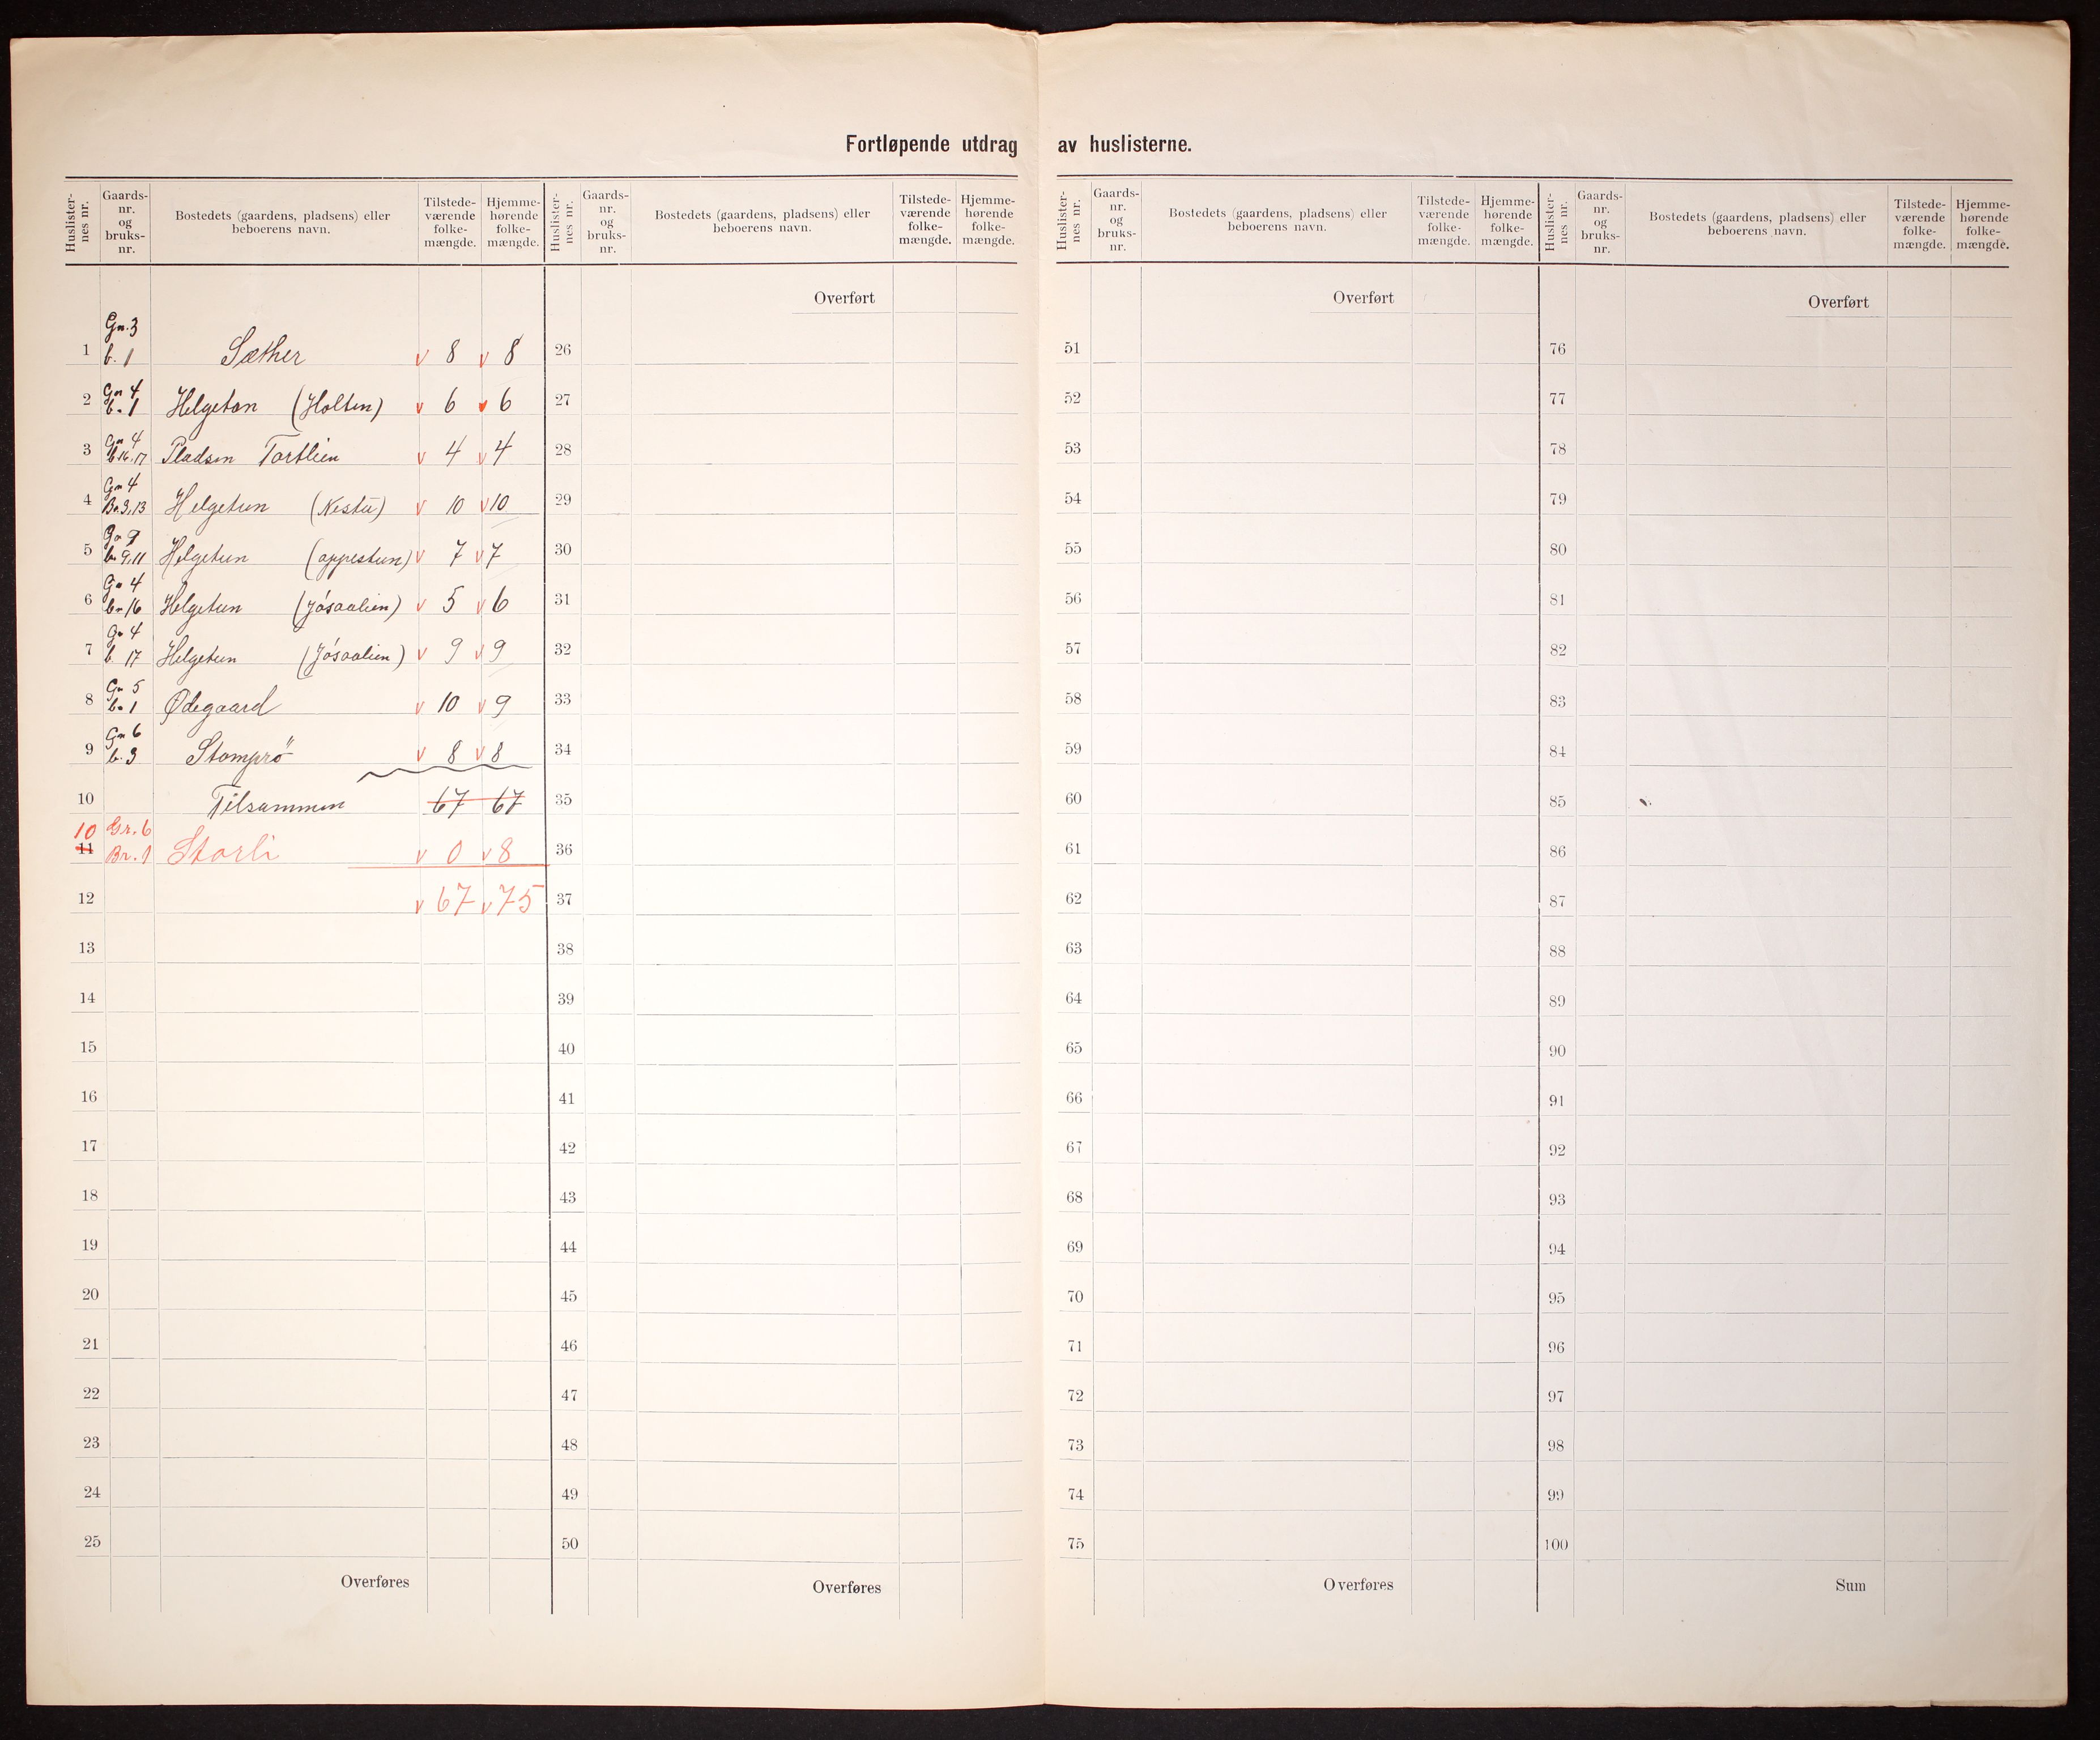 Fortløpende utdrag av huslisterne.
Huslister-nes nr. Gaards-nr. og bruks-nr. Bostedets (gaardens, pladsens) eller beboerens navn. Tilstede-værende folke-mængde. Hjemme-hørende folke-mængde.
Gn. 3
1 b. 1 Sæther v 8 v 8
Gn 4
2 b. 1 Helgeton (Holten) v 6 v 6
Gn 4
3 b 16.17 Pladsen Tortlien v 4 v 4
Gn 4
4 Bn. 3,13 Helgetun (Nestu) v 10 v 10
Gn 9
5 bn 9,11 Helgetun (oppestun) v 7 v 7
Gn 4
6 bn 16 Helgetun (Jósaalien) v 5 v 6
Gn 4
7 b. 17 Helgetun (Jósaalien) v 9 v 9
Gn 5
8 bn 1 Ødegaard v 10 v 9
Gn 6
9 b. 3 Stomprö v 8 v 8
10 Tilsammen 67 67
10 Gr. 6
11 Br. 1 Storli v 0 v 8
12 v 67 v 75
13
14
15
16
17
18
19
20
21
22
23
24
25
Overføres
Huslister-nes nr. Gaards-nr. og bruks-nr. Bostedets (gaardens, pladsens) eller beboerens navn. Tilstede-værende folke-mængde. Hjemme-hørende folke-mængde.
Overført
26
27
28
29
30
31
32
33
34
35
36
37
38
39
40
41
42
43
44
45
46
47
48
49
50
Overføres
Huslister-nes nr. Gaards-nr. og bruks-nr. Bostedets (gaardens, pladsens) eller beboerens navn. Tilstede-værende folke-mængde. Hjemme-hørende folke-mængde.
Overført
51
52
53
54
55
56
57
58
59
60
61
62
63
64
65
66
67
68
69
70
71
72
73
74
75
Overføres
Huslister-nes nr. Gaards-nr. og bruks-nr. Bostedets (gaardens, pladsens) eller beboerens navn. Tilstede-værende folke-mængde. Hjemme-hørende folke-mængde.
Overført
76
77
78
79
80
81
82
83
84
85
86
87
88
89
90
91
92
93
94
95
96
97
98
99
100
Sum